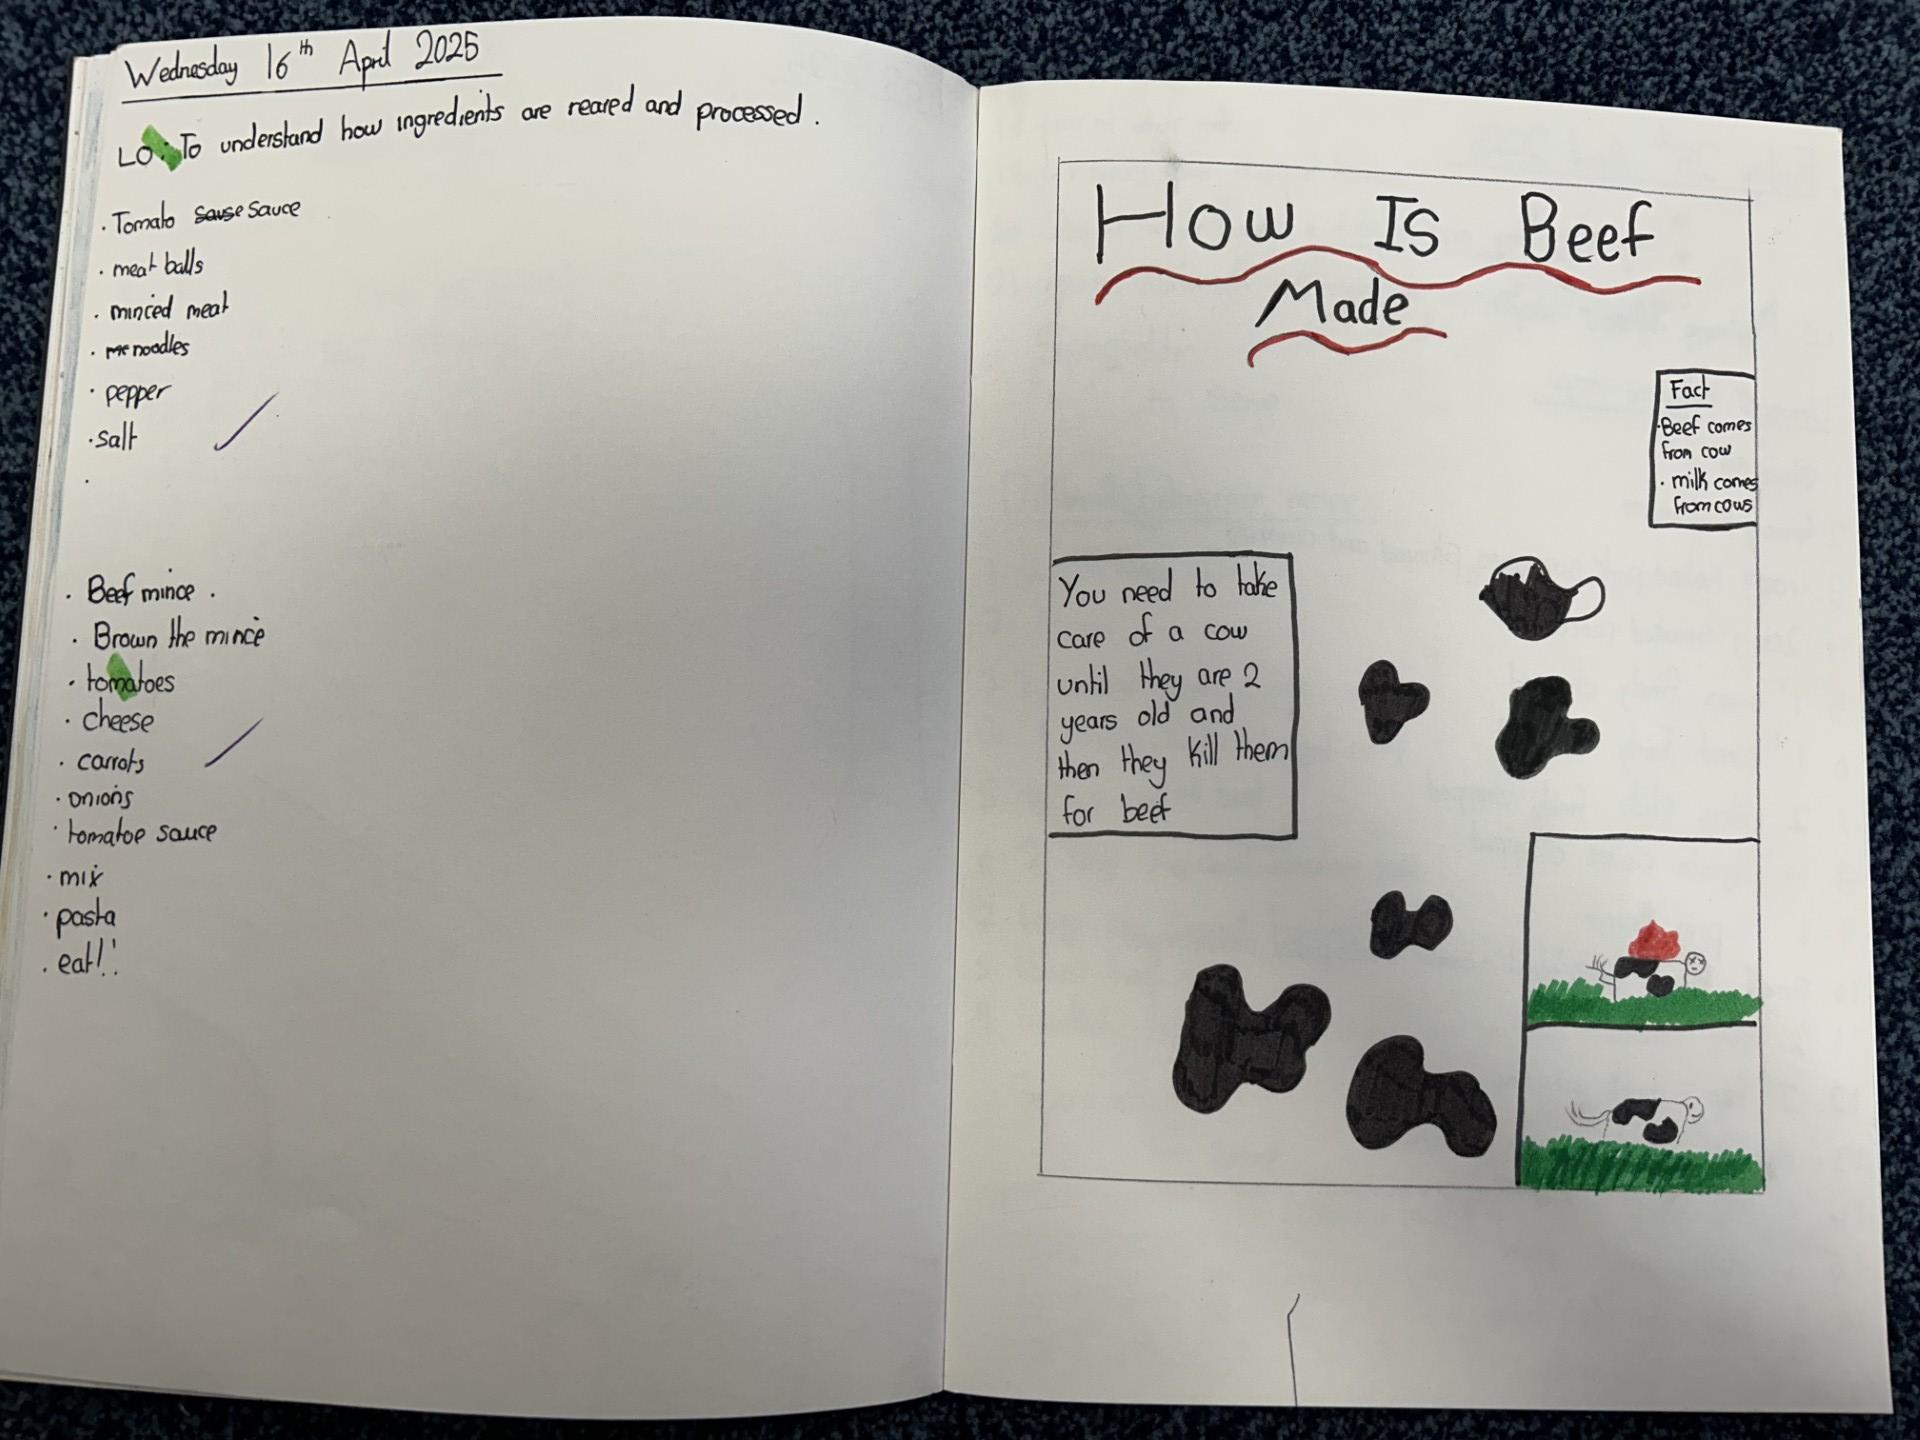 Wednesday 16th April 2025
LO: To understand how ingredients are reared and processed.
· Tomato sause sauce
· meat balls
· minced meat
· me noodles
· pepper
· salt
·
· Beef mince .
· Brown the mince
· tomatoes
· cheese
· carrots
· onions
· tomatoe sauce
· mix
· pasta
· eat!!
How Is Beef
Made
Fact
· Beef comes
from cow
· milk comes
from cows
You need to take
care of a cow
until they are 2
years old and
then they kill them
for beef